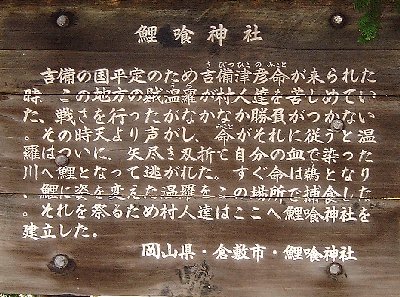 鯉喰神社
吉備の国平定のため吉備津彦命が来られた
きびつひこのみこと
時、この地方の賊温羅が村人達を苦しめてい
た、戦さを行ったがなかなか勝負がつかない
。その時天より声がし、命がそれに従うと温
羅はついに、矢尽き刃折て自分の血で染った
川へ鯉となって逃がれた。すぐ命は鵜となり
、鯉に姿を変えた温羅をこの場所で捕食した
。それを祭るため村人達はここへ鯉喰神社を
建立した.
岡山県・倉敷市・鯉喰神社